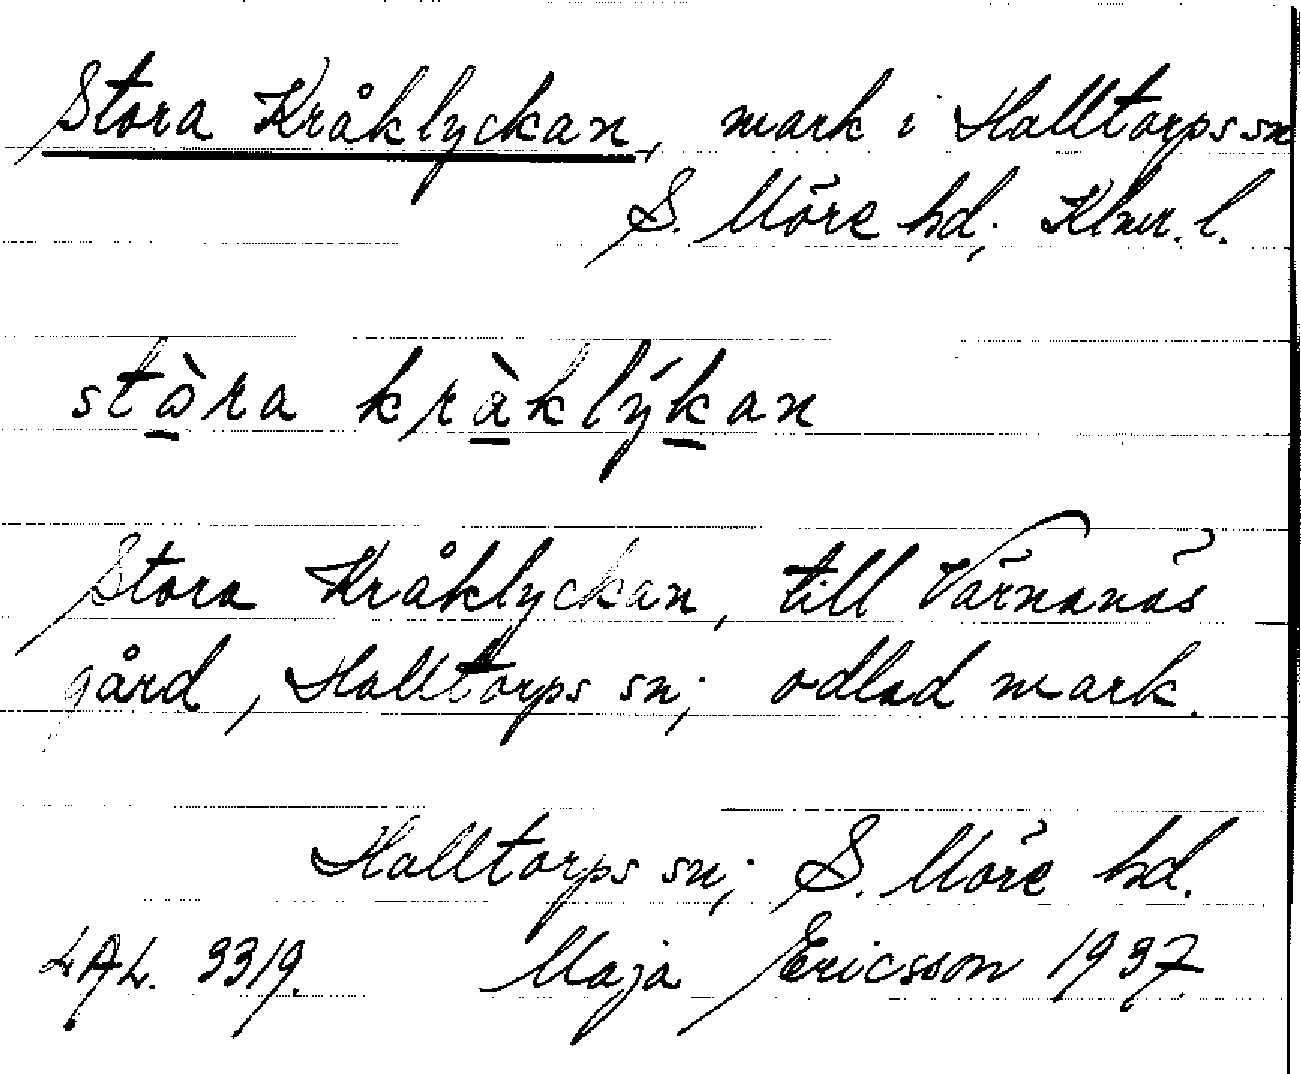 Stora Kråklyckan, mark i Halltorps sn
S. Möre hd; Klmr. l.
stòra kràklýkan
Stora Kråklyckan, till Värnanäs
gård, Halltorps sn; odlad mark.
Halltorps sn; S. Möre hd.
LAL. 3319. Maja Ericsson 1937.